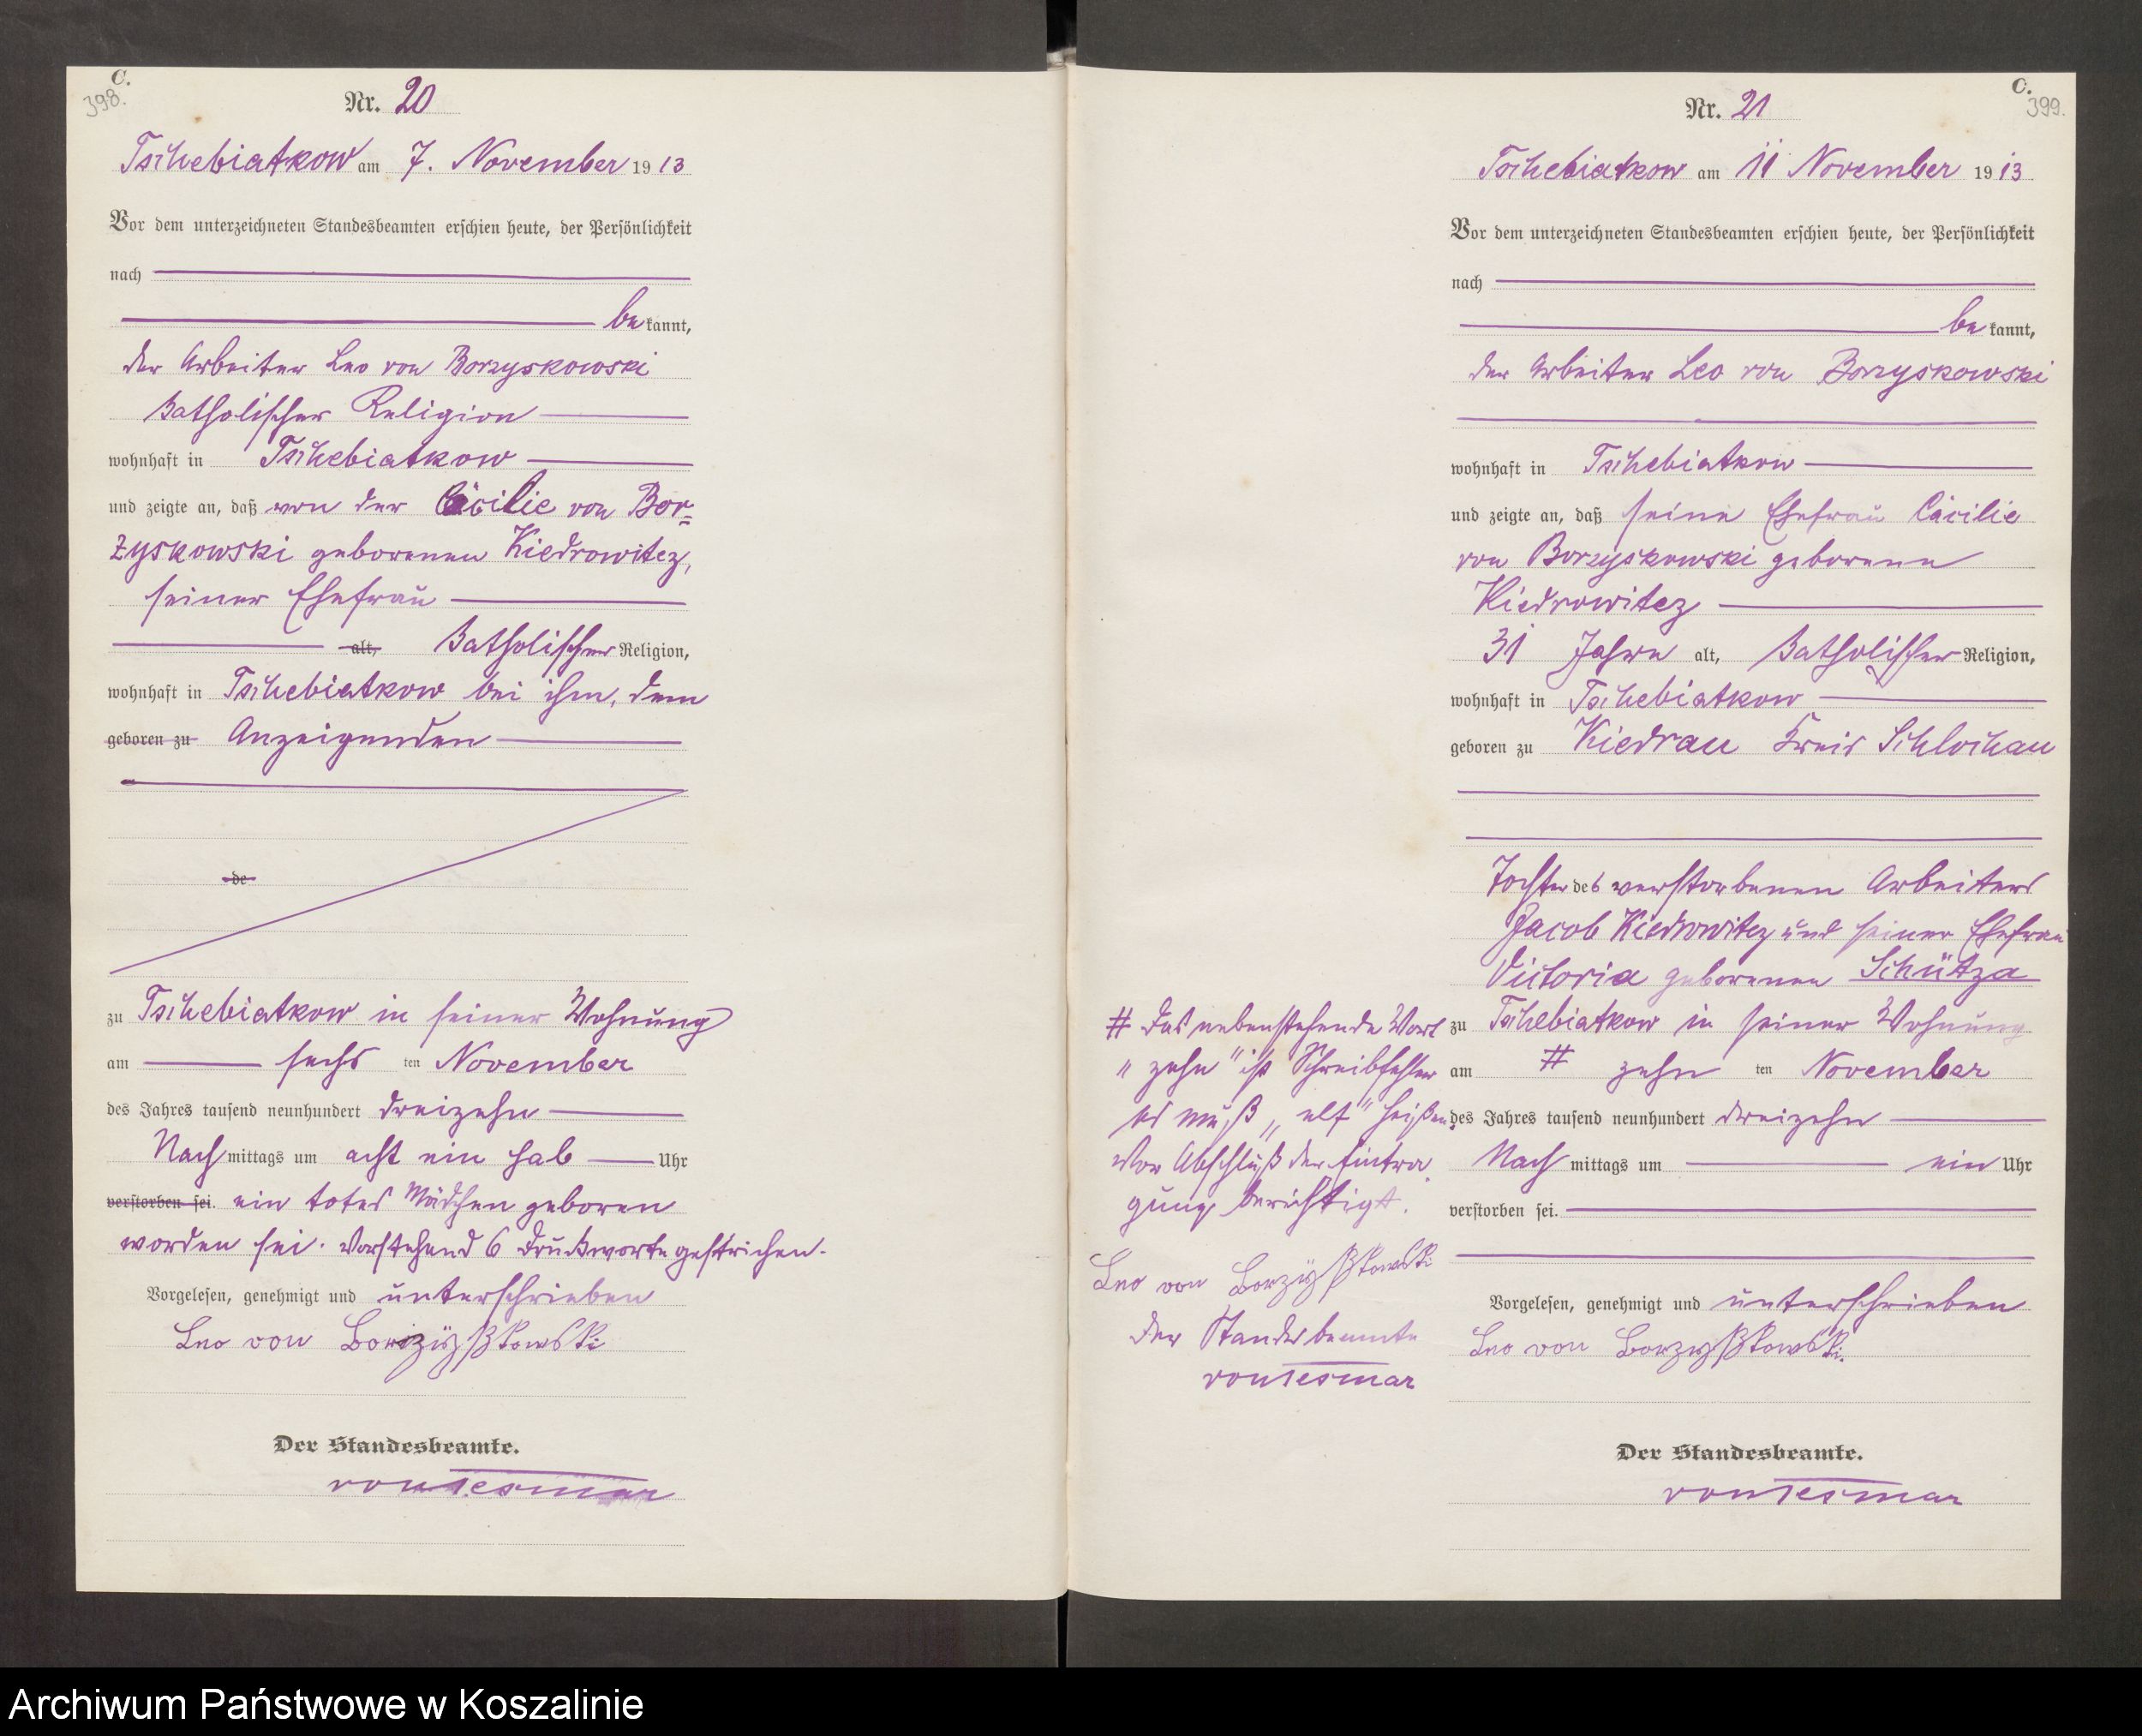 C.
398.
Nr. 20
Tschebiatkow am 7. November 1913
Vor dem unterzeichneten Standesbeamten erschien heute, der Persönlichkeit
nach
be kannt,
der Arbeiter Leo von Borzyskowski
katholischer Religion
wohnhaft in Tschebiatkow
und zeigte an, daß von der Cäcilie von Bor=
zyskowski geborenen Kiedrowitcz,
seiner Ehefrau
alt, katholischer Religion,
wohnhaft in Tschebiatkow bei ihm, dem
geboren zu Anzeigenden
de
zu Tschebiatkow in seiner Wohnung
am sechs ten November
des Jahres tausend neunhundert dreizehn
Nachmittags um acht ein halb Uhr
verstorben sei. ein totes Mädchen geboren
worden sei. Vorstehend 6 Druckworte gestrichen.
Vorgelesen, genehmigt und unterschrieben
Leo von Borzyßkowski
Der Standesbeamte.
C.
399.
Nr. 21
Tschebiatkow am 11 November 1913
Vor dem unterzeichneten Standesbeamten erschien heute, der Persönlichkeit
nach
be kannt,
der Arbeiter Leo von Borzyskowski
wohnhaft in Tschebiatkow
und zeigte an, daß seine Ehefrau Cäcilie
von Borzyskowski geborene
Kiedrowitcz
31 Jahre alt, katholischer Religion,
wohnhaft in Tschebiatkow
geboren zu Kiedrau Kreis Schlochau
Tochter des verstorbenen Arbeiters
Jacob Kiedrowitcz und seiner Ehefrau
Victoria geborenen Schütza
zu Tschebiatkow in seiner Wohnung
am # zehn ten November
des Jahres tausend neunhundert dreizehn
Nach mittags um ein Uhr
verstorben sei.
Vorgelesen, genehmigt und unterschrieben
Leo von Borzyßkowski.
Der Standesbeamte.
# Das nebenstehende Wort
„zehn" ist Schreibfehler
es muß „elf" heißen.
Vor Abschluß der Eintra
gung berichtigt.
Leo von Borzyßkowski
Der Standesbeamte
Archiwum Państwowe w Koszalinie